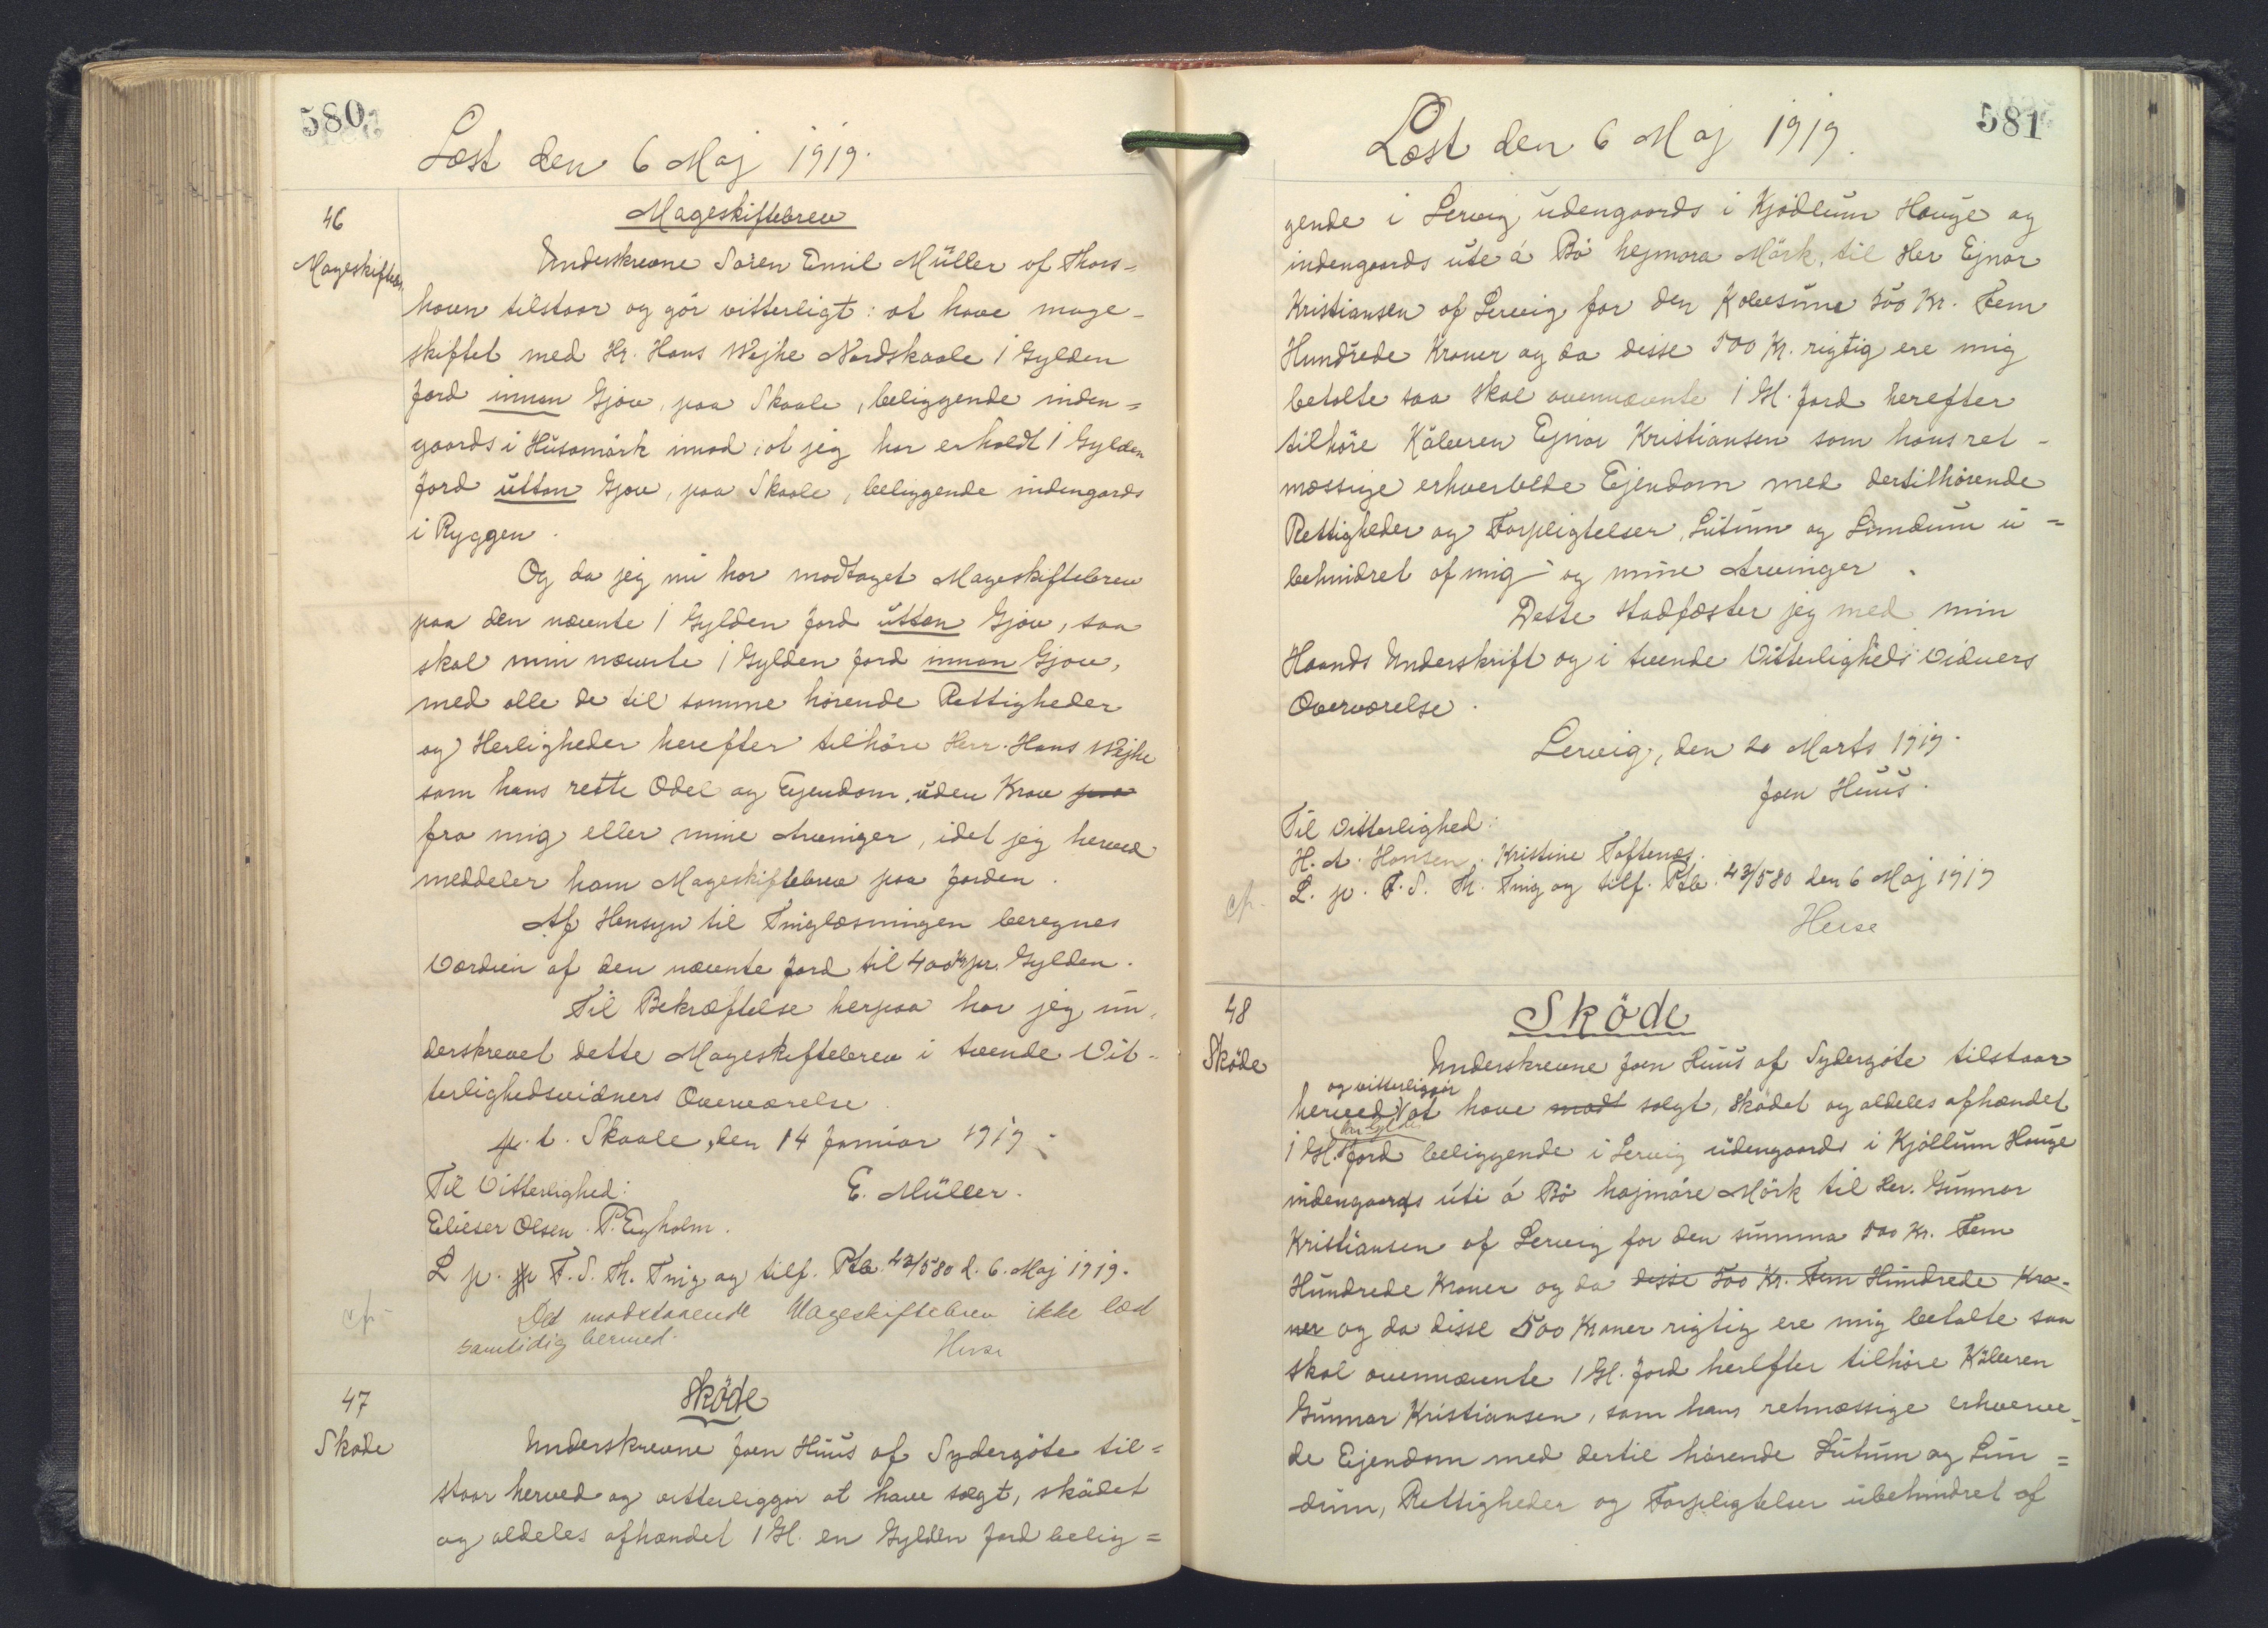 580
Læst den 6 Maj 1919.
46
Mageskiftebr.
Mageskiftebrev
Underskrevne Sören Emil Müller af Thors=
havn tilstaar og gör vitterligt: at have mage-
skiftet med Hr. Hans Wejhe Nordskaale 1 Gylden
Jord innan Gjov, paa Skaale, beliggende inden=
gaards i Húsamørk imod: at jeg har erholdt 1 Gylden
Jord úttan Gjov, paa Skaale, beliggende indengaards
i Ryggen.
Og da jeg nu har modtaget Mageskiftebrev
paa den nævnte 1 Gylden Jord úttan Gjov, saa
skal min nævnte 1 Gylden Jord innan Gjov,
med alle de til samme hørende Rettigheder
og Herligheder herefter tilhöre Herr. Hans Wejhe
som hans rette Odel og Ejendom, uden Krav paa
fra mig eller mine Arvinger, idet jeg herved
meddeler ham Mageskiftebrev paa Jorden.
Af Hensyn til Tinglæsningen beregnes
Værdien af den nævnte Jord til 400 Kr pr. Gylden.
Til Bekræftelse herpaa har jeg un-
derskrevet dette Mageskiftebrev i tvende Vit-
terlighedsvidners Overværelse.
p. t. Skaale, den 14 Januar 1919.
Til Vitterlighed: E. Müller.
Elieser Olsen. P. Eyholm.
L. p. F. S. Th. Ting og tilf. Ptb. 42/580 d. 6. Maj 1919.
Det modstaaende Mageskiftebrev ikke læst
samtidig hermed.
Heise
cfr.
47
Sköde
Sköde
Underskrevne Joen Huus af Sydergöte til=
staar herved og vitterliggör at have solgt, skødet
og aldeles afhændet 1 Gl. en Gylden Jord belig=
581
Læst den 6 Maj 1919.
gende i Lervig udengaards i Kjødlum Hauge og
indengaards úte á Bö hejmara Mörk, til Her Ejnar
Kristiansen af Lervig for den Købesum 500 Kr. Fem
Hundrede Kroner og da disse 500 Kr. rigtig ere mig
betalte saa skal ovennævnte 1 Gl. Jord herefter
tilhöre Köberen Ejnar Kristiansen som hans ret-
mæssige erhvervede Ejendom med dertilhørende
Rettigheder og Forpligtelser, Lutum og Lundum u=
behindret af mig og mine Arvinger.
Dette stadfæster jeg med min
Haands Underskrift og i tvende Vitterligheds Vidners
Overværelse.
Lervig, den 20 Marts 1919.
Joen Huus.
Til Vitterlighed:
H. A. Hansen. Kristine Toftenæs.
L. p. F. S. Th. Ting og tilf. Ptb. 42/580 den 6 Maj 1919
Heise
cfr.
48
Sköde
Sköde
Underskrevne Joen Huus af Sydergöte tilstaar
og vitterliggör
herved at have modt solgt, skødet og aldeles afhændet
1 Gl. Jord beliggende i Lervig udengaards i Kjöllum Hauge
indengaards úti á Bö hajmare Mörk til Her. Gunnar
Kristiansen af Lervig for den summa 500 Kr. Fem
Hundrede Kroner og da disse 500 Kr. Fem Hundrede Kro-
ner og da disse 500 Kroner rigtig ere mig betalte saa
skal ovennævnte 1 Gl. Jord herefter tilhöre Köberen
Gunnar Kristiansen, som hans retmæssige erhverve-
de Ejendom med dertil hørende Lutum og Lun=
dum, Rettigheder og Forpligtelser ubehindret af